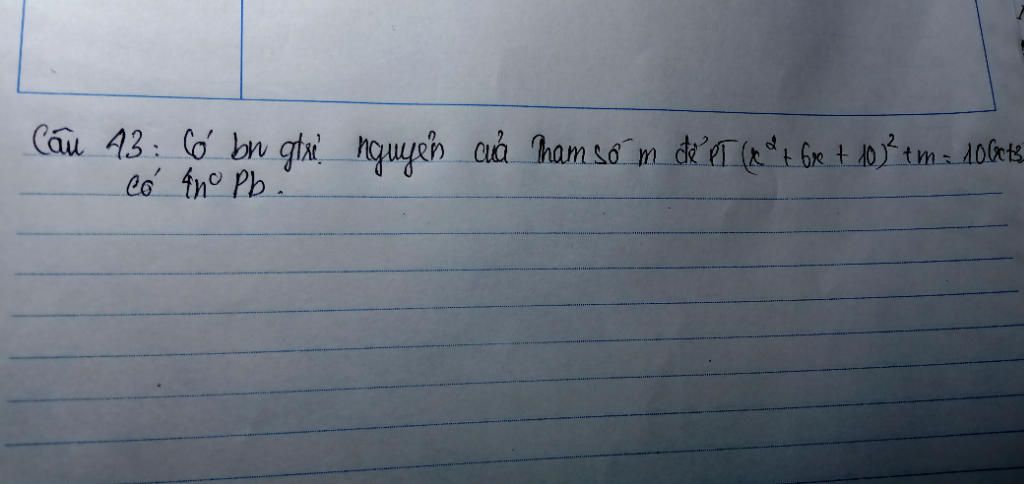 Câu 43: Có bn gtrị nguyên của Tham số m để PT (x² + 6x + 10)² + m = 10(x+3
có 4n⁰ Pb.